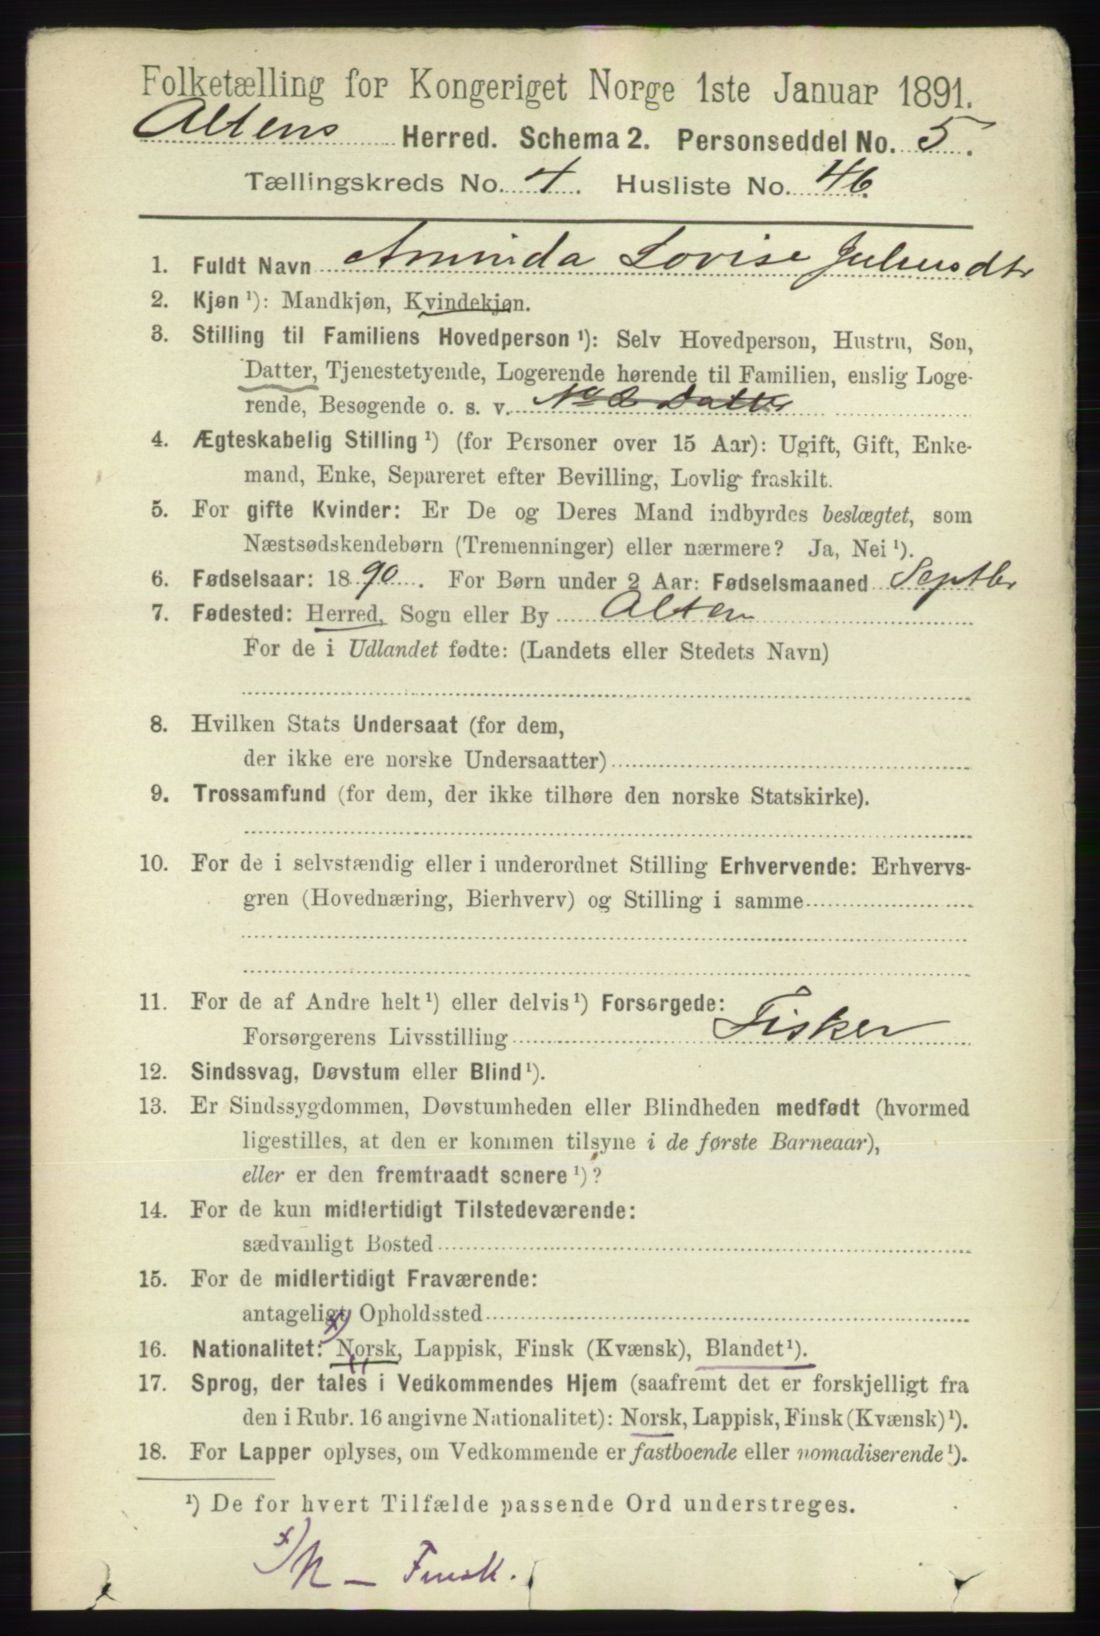 Folketælling for Kongeriget Norge 1ste Januar 1891.
Altens Herred. Schema 2. Personseddel No. 5.
Tællingskreds No. 4. Husliste No. 46.
1. Fuldt Navn Aminda Lovise Julsensdtr
2. Kjøn ¹): Mandkjøn, Kvindekjøn.
3. Stilling til Familiens Hovedperson ¹): Selv Hovedperson, Hustru, Søn,
Datter, Tjenestetyende, Logerende hørende til Familien, enslig Loge-
rende, Besøgende o. s. v. No 2 Datter
4. Ægteskabelig Stilling ¹) (for Personer over 15 Aar): Ugift, Gift, Enke-
mand, Enke, Separeret efter Bevilling, Lovlig fraskilt.
5. For gifte Kvinder: Er De og Deres Mand indbyrdes beslægtet, som
Næstsødskendebørn (Tremenninger) eller nærmere? Ja, Nei ¹).
6. Fødselsaar: 1890. For Børn under 2 Aar: Fødselsmaaned Septbr
7. Fødested: Herred, Sogn eller By Alten
For de i Udlandet fødte: (Landets eller Stedets Navn)
8. Hvilken Stats Undersaat (for dem,
der ikke ere norske Undersaatter)
9. Trossamfund (for dem, der ikke tilhøre den norske Statskirke).
10. For de i selvstændig eller i underordnet Stilling Erhvervende: Erhvervs-
gren (Hovednæring, Bierhverv) og Stilling i samme
11. For de af Andre helt ¹) eller delvis ¹) Forsørgede:
Forsørgerens Livsstilling Fisker
12. Sindssvag, Døvstum eller Blind ¹).
13. Er Sindssygdommen, Døvstumheden eller Blindheden medfødt (hvormed
ligestilles, at den er kommen tilsyne i de første Barneaar),
eller er den fremtraadt senere ¹)?
14. For de kun midlertidigt Tilstedeværende:
sædvanligt Bosted
15. For de midlertidigt Fraværende:
antageligt Opholdssted
16. Nationalitet: x) Norsk, Lappisk, Finsk (Kvænsk), Blandet ¹).
17. Sprog, der tales i Vedkommendes Hjem (saafremt det er forskjelligt fra
den i Rubr. 16 angivne Nationalitet): Norsk, Lappisk, Finsk (Kvænsk) ¹).
18. For Lapper oplyses, om Vedkommende er fastboende eller nomadiserende ¹).
¹) De for hvert Tilfælde passende Ord understreges.
x) N — Finsk.